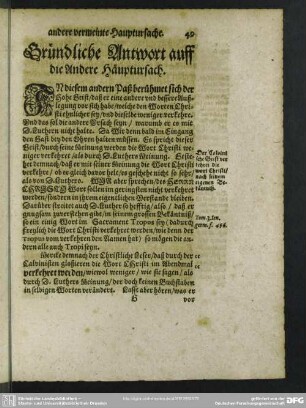 andere vermeinte Hauptursache. 49
Gründliche Antwort auff
die Andere Häuptursach.
IN diesem andern Paß berühmet sich der
Hohe Geist, daß er eine andere vnd bessere Auß-
legung vor sich habe, welche den Worten Chri-
sti ehnlicher sey, vnd dieselbe weniger verkehre.
Vnd das sol die andere Vrsach seyn, warumb er es mit
D. Luthern nicht halte. Da Wir denn bald im Eingang
den Baß bey den Ohren halten müssen. Es spricht dieser
Geist, durch seine Meinung werden die Wort Christi we-
niger verkehret, als durch D. Luthers Meinung. Gestehet
der demnach, daß er mit seiner Meinung die Wort Christi
verkehre, ob er gleich davor helt, es geschehe nicht so sehr,
als von D. Luthern. WIR aber sprechen, des HERRN
CHRISTI Wort sollen im geringsten nicht verkehret wer-
den, sondern in ihrem eigentlichen Verstande bleiben.
Darüber streitet auch D. Luther so hefftig, also, daß er
gnugsam zuverstehen gibt, in seinem grossen Bekäntniß,
so ein einig Wort im Sacrament Tropus sey, dadurch
freylich die Wort Christi verkehret werden, wie denn ein
Tropus vom verkehren den Namen hat, so mögen die an-
dern alle auch Tropi seyn.
Hieraus demnach der Christliche Leser, daß durch der
Calvinisten glossieren die Wort Christi im Abendmal
verkehret werden, wiewol weniger, wie sie sagen, als
durch D. Luthers Meinung, der doch keinen Buchstaben
in selbigen Worten verändert. Lasse aber hören, was er
G vor
Der
sche Geist ver
kehret die
wort Christi
nach seinem
eigenen Be-
käntniß.
Tom. 3. Im.
germ. f. 476.